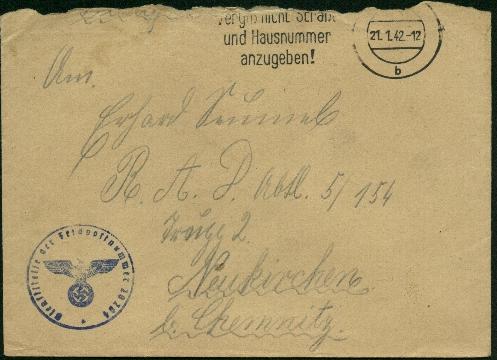 vergiß nicht Straße
und Hausnummer
anzugeben!
21.1.42.-12
b
An.
Erhard
R. A. D. Abtl. 5/154
Trupp 2.
Neukirchen
b. Chemnitz.
Dienststelle der Feldpostnummer